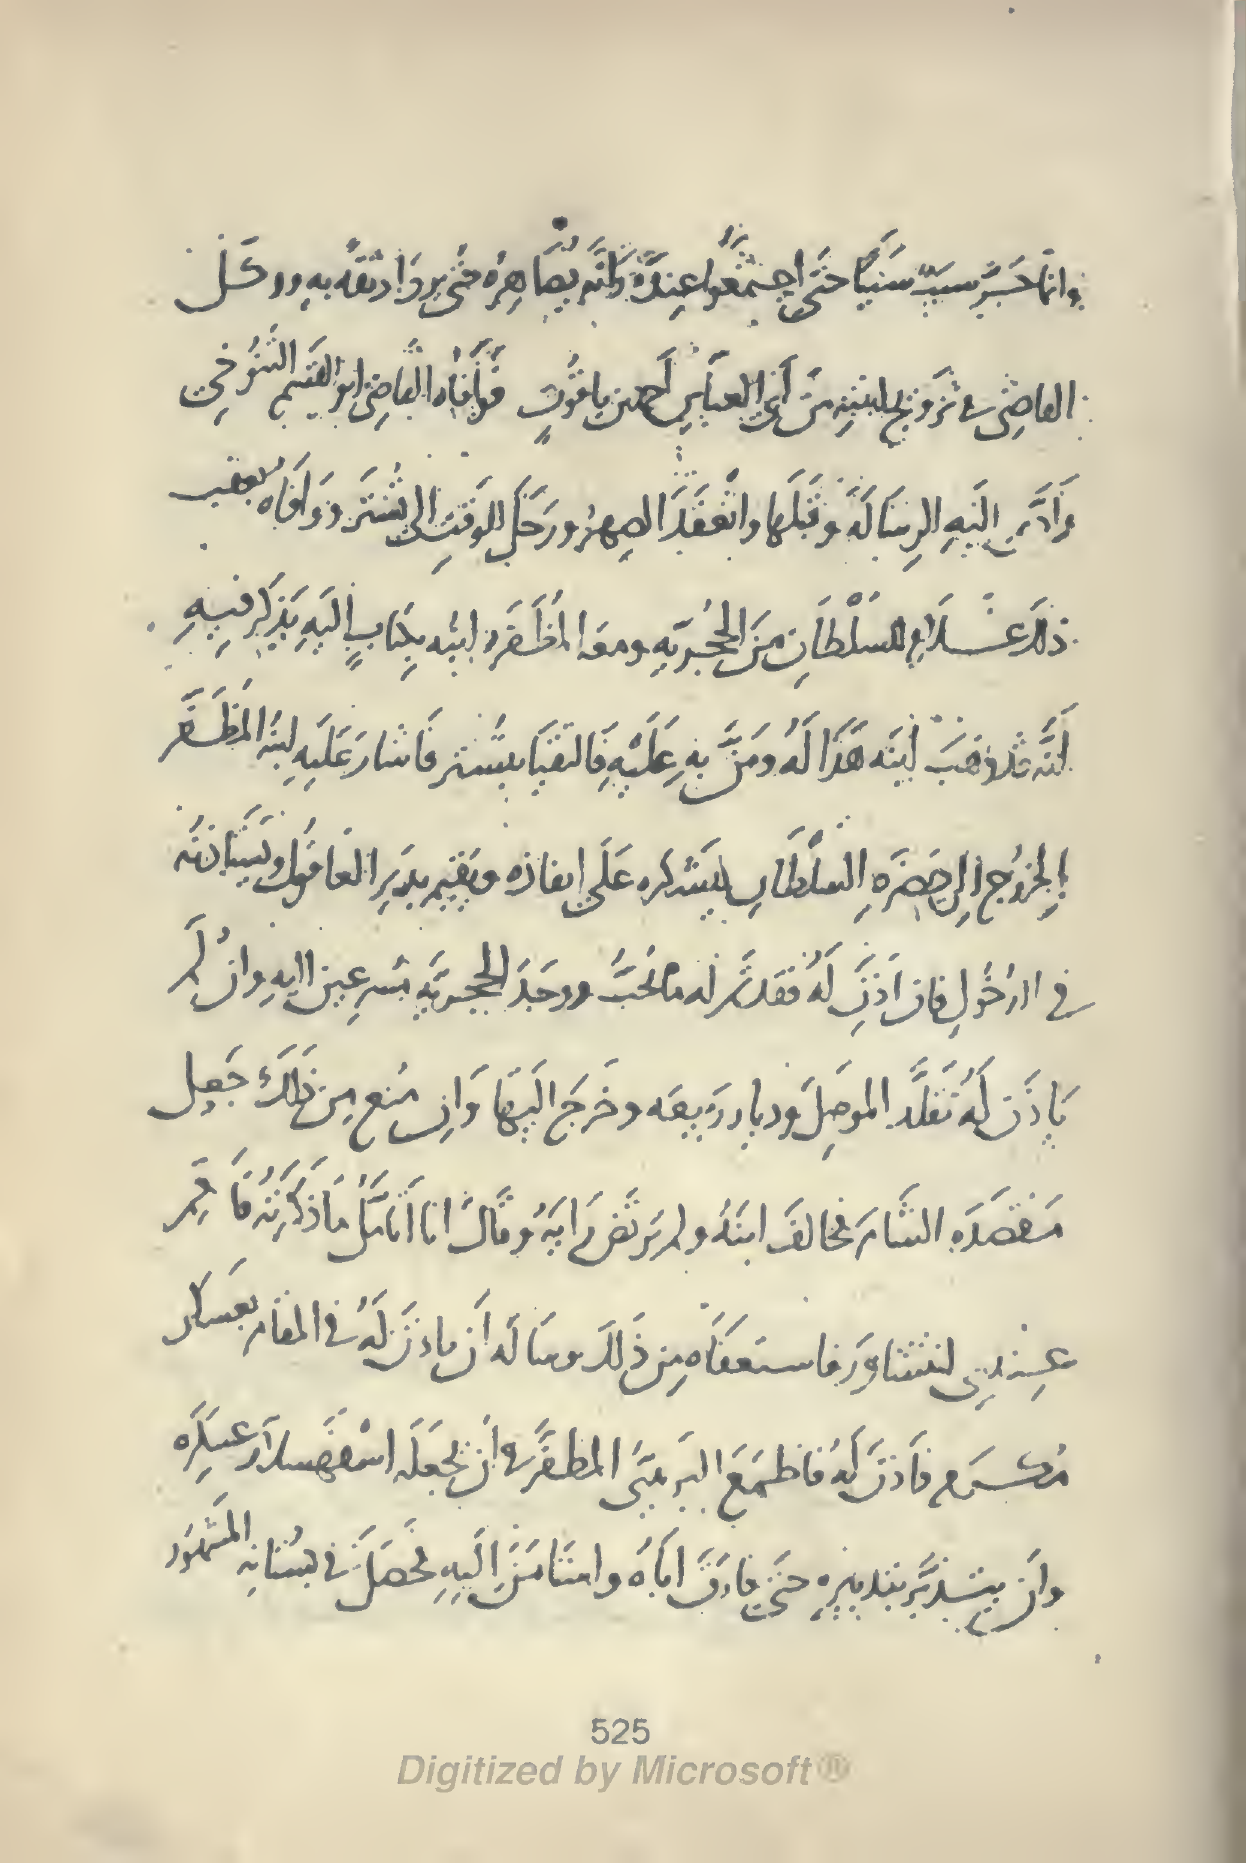 وانما خبر سيئا سيئا حتى اجتمعوا عنده وانه يصاهره حتى يزداد ثقه به ووكل
القاضى فى تزويج ابنته من أبى العباس أحمد بن ياقوت فوافاه القاضى ابو القسم التنوخى
وَادَّى اليه الرساله وقبلها وانعقد الصهر ورحل للوقت الى تستر ووافاه بعقب
ذلك غلام للسلطان من الحجريه ومعه المظفر ابنه بكتاب اليه يذكر فيه
انه قد وهب ابنه هذا له ومنّ به عليه فالتقيا بتستر فاشار عليه ابنه المظفر
بالخروج الى حضرة السلطان ليشكره على انفاذه ويقيم بدير العاقول ويستاذنه
فى الدخول فان اذن له فقد تم له ما نحب ووجد الحجريه مسرعين اليه وان لم
ياذن له تقلد الموصل وديار ربيعه وخرج اليها وان منع من ذلك جعل
مقصده الشام فخالف ابنه ولم يرتض رايه وقال انا اتامل ما ذكرته فاقم
عندى لنتشاور فاستعفاه من ذلك وساله أن ياذن له فى المقام بعسكر
مكرم فاذن له فاطمع البريدى المظفر فى أن يجعله اسفهسلار عسكره
وان يتدبر بتدبيره حتى فارق اباه واستامن اليه فحصل فى بستانه المشهور
525
Digitized by Microsoft®